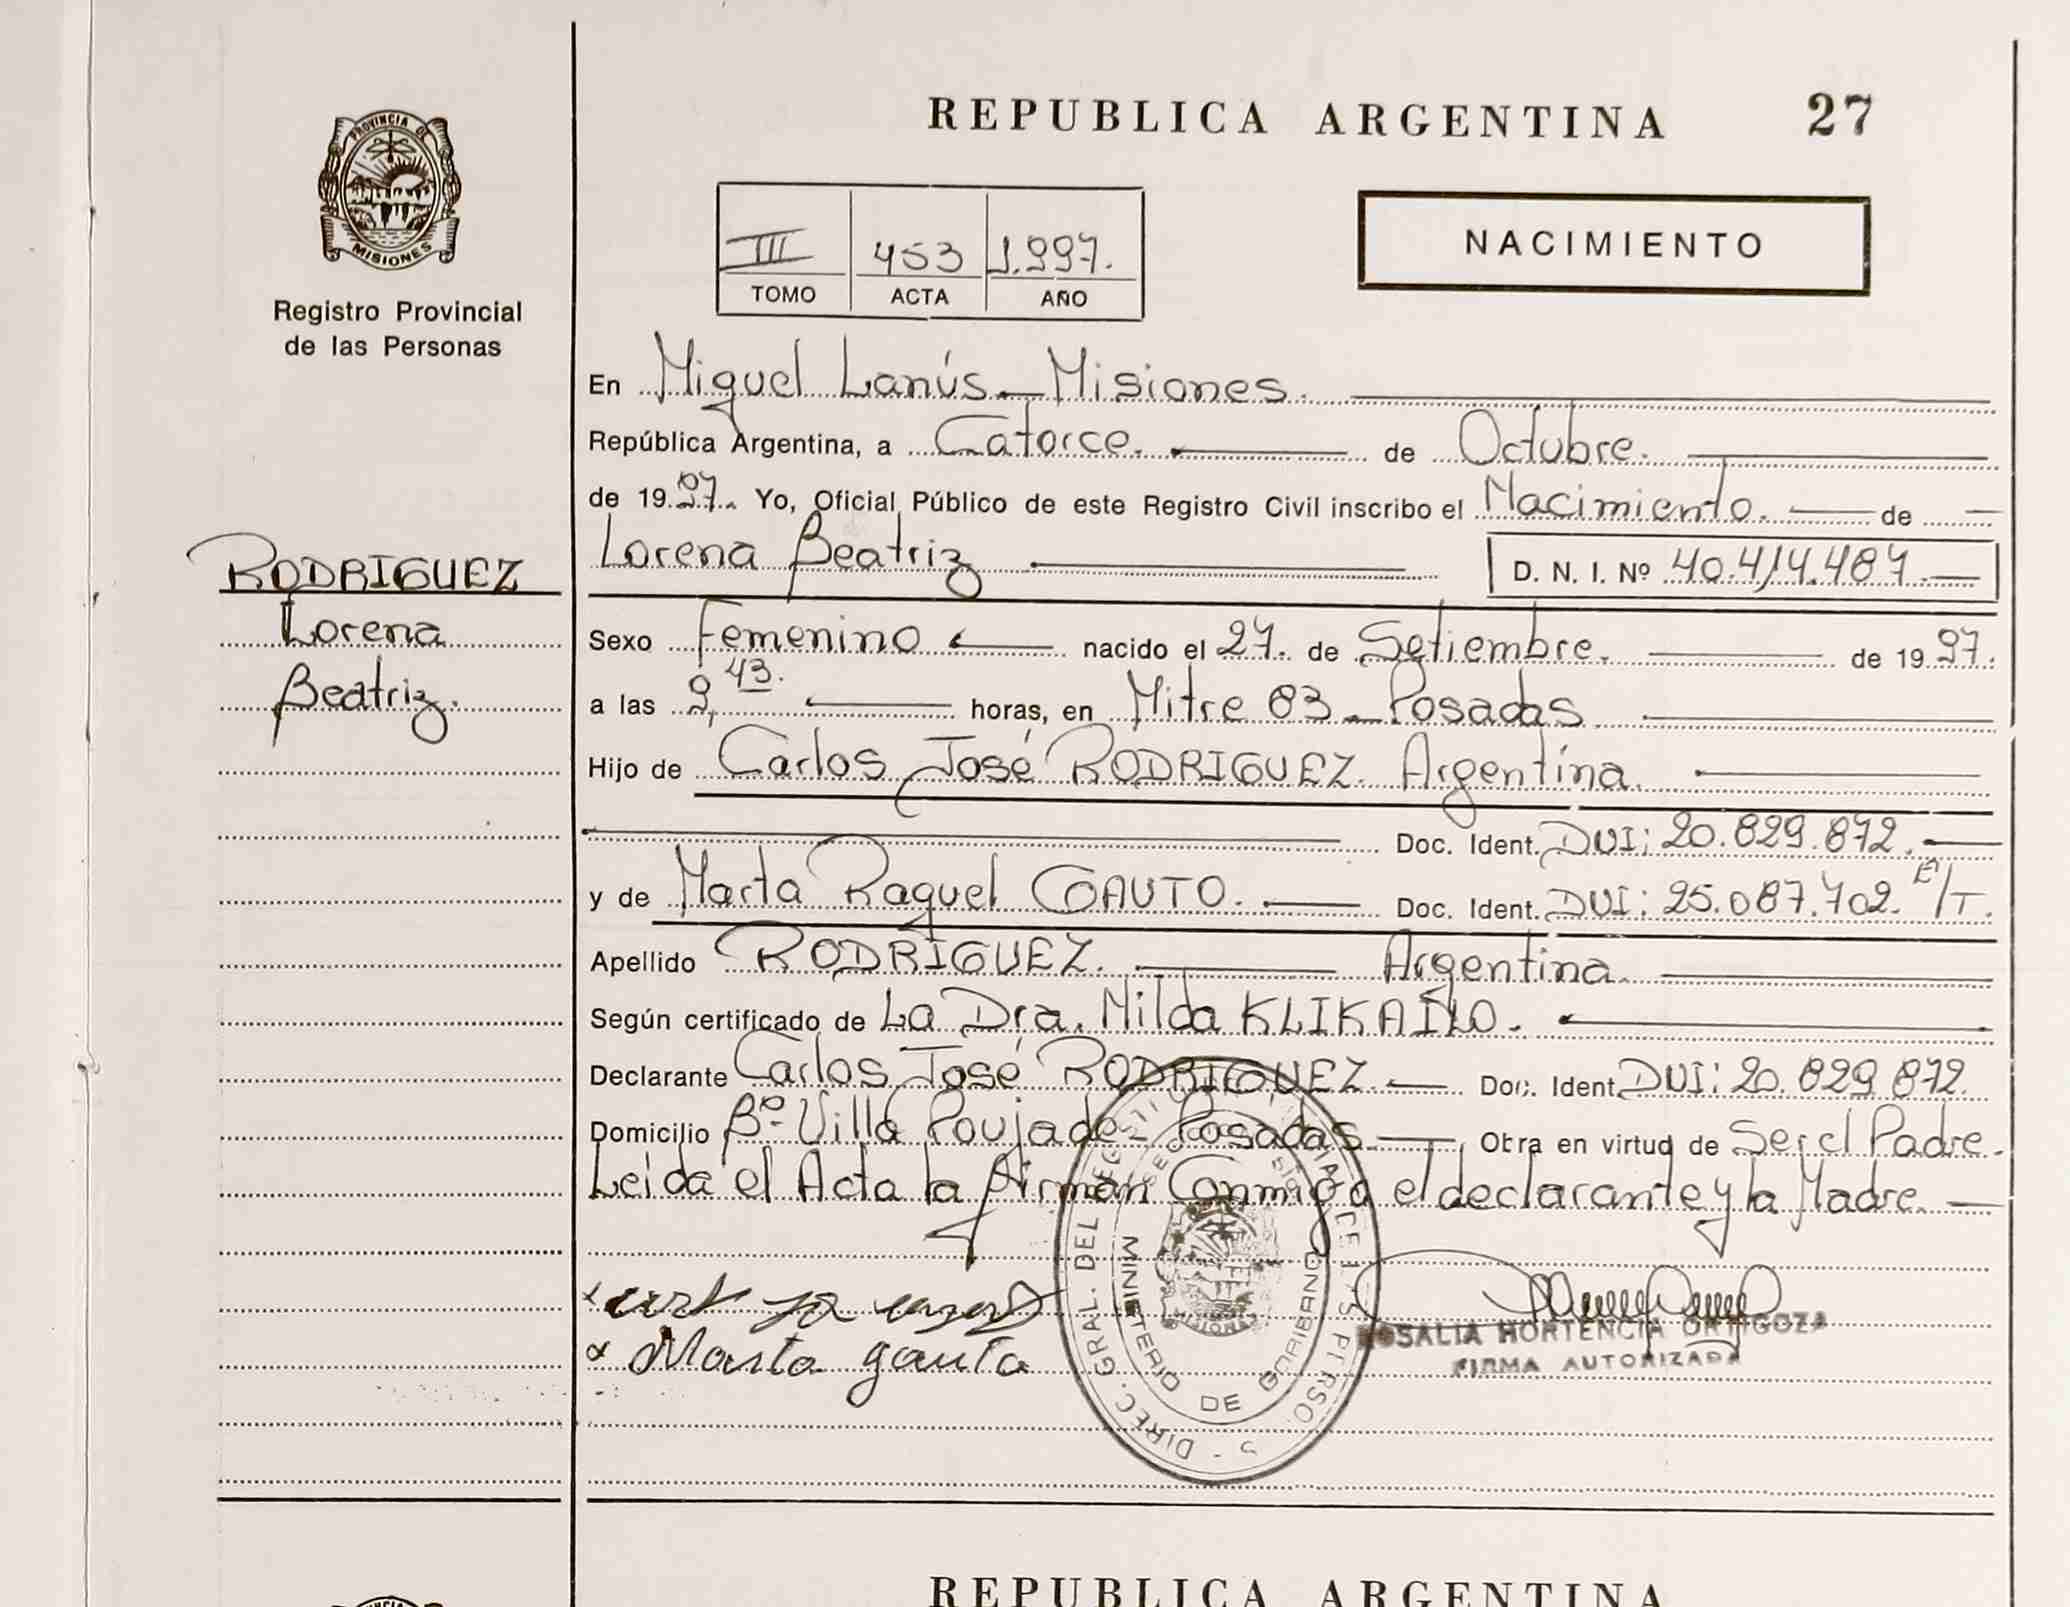 REPUBLICA ARGENTINA 27
PROVINCIA DE
MISIONES
Registro Provincial
de las Personas
III 453 1.997.
TOMO ACTA AÑO
NACIMIENTO
En Miguel Lanús - Misiones.
República Argentina, a Catorce. de Octubre.
de 1997. Yo, Oficial Público de este Registro Civil inscribo el Nacimiento. de
Lorena Beatriz D. N. I. Nº 40.414.487.
RODRIGUEZ
Lorena
Beatriz.
Sexo Femenino nacido el 27. de Setiembre. de 1997.
a las 9,43. horas, en Mitre 83 - Posadas
Hijo de Carlos José RODRIGUEZ. Argentina.
Doc. Ident. DNI: 20.829.872.
y de Marta Raquel GAUTO. Doc. Ident. DNI: 25.087.702. E/T.
Apellido RODRIGUEZ. Argentina.
Según certificado de La Dra. Nilda
Declarante Carlos José RODRIGUEZ. Doc. Ident. DNI: 20.829.872.
Domicilio Bº Villa Poujade - Posadas. Obra en virtud de Ser el Padre.
Leida el Acta la firman Conmigo el declarante y la Madre.
Marta gauto
DIREC. GRAL. DEL DE LAS PERSO
MINISTERIO DE
MISIONES
ROSALIA HORTENCIA ORTIGOZA
FIRMA AUTORIZADA
REPUBLICA ARGENTINA